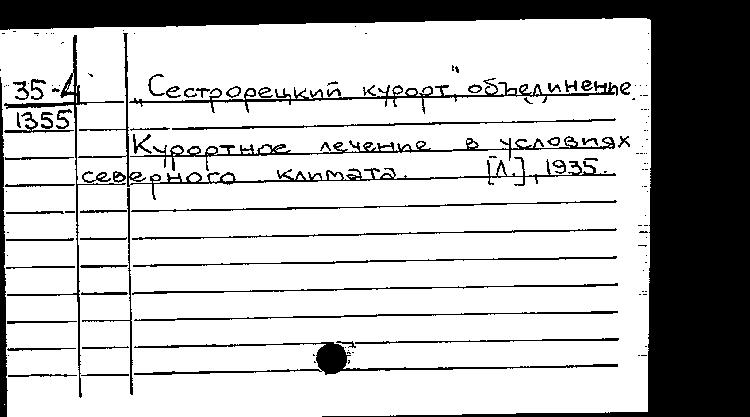 35-4
1355
„Сестрорецкий курорт", объединение.
Курортное лечение в условиях
северного климата. [Л.], 1935.